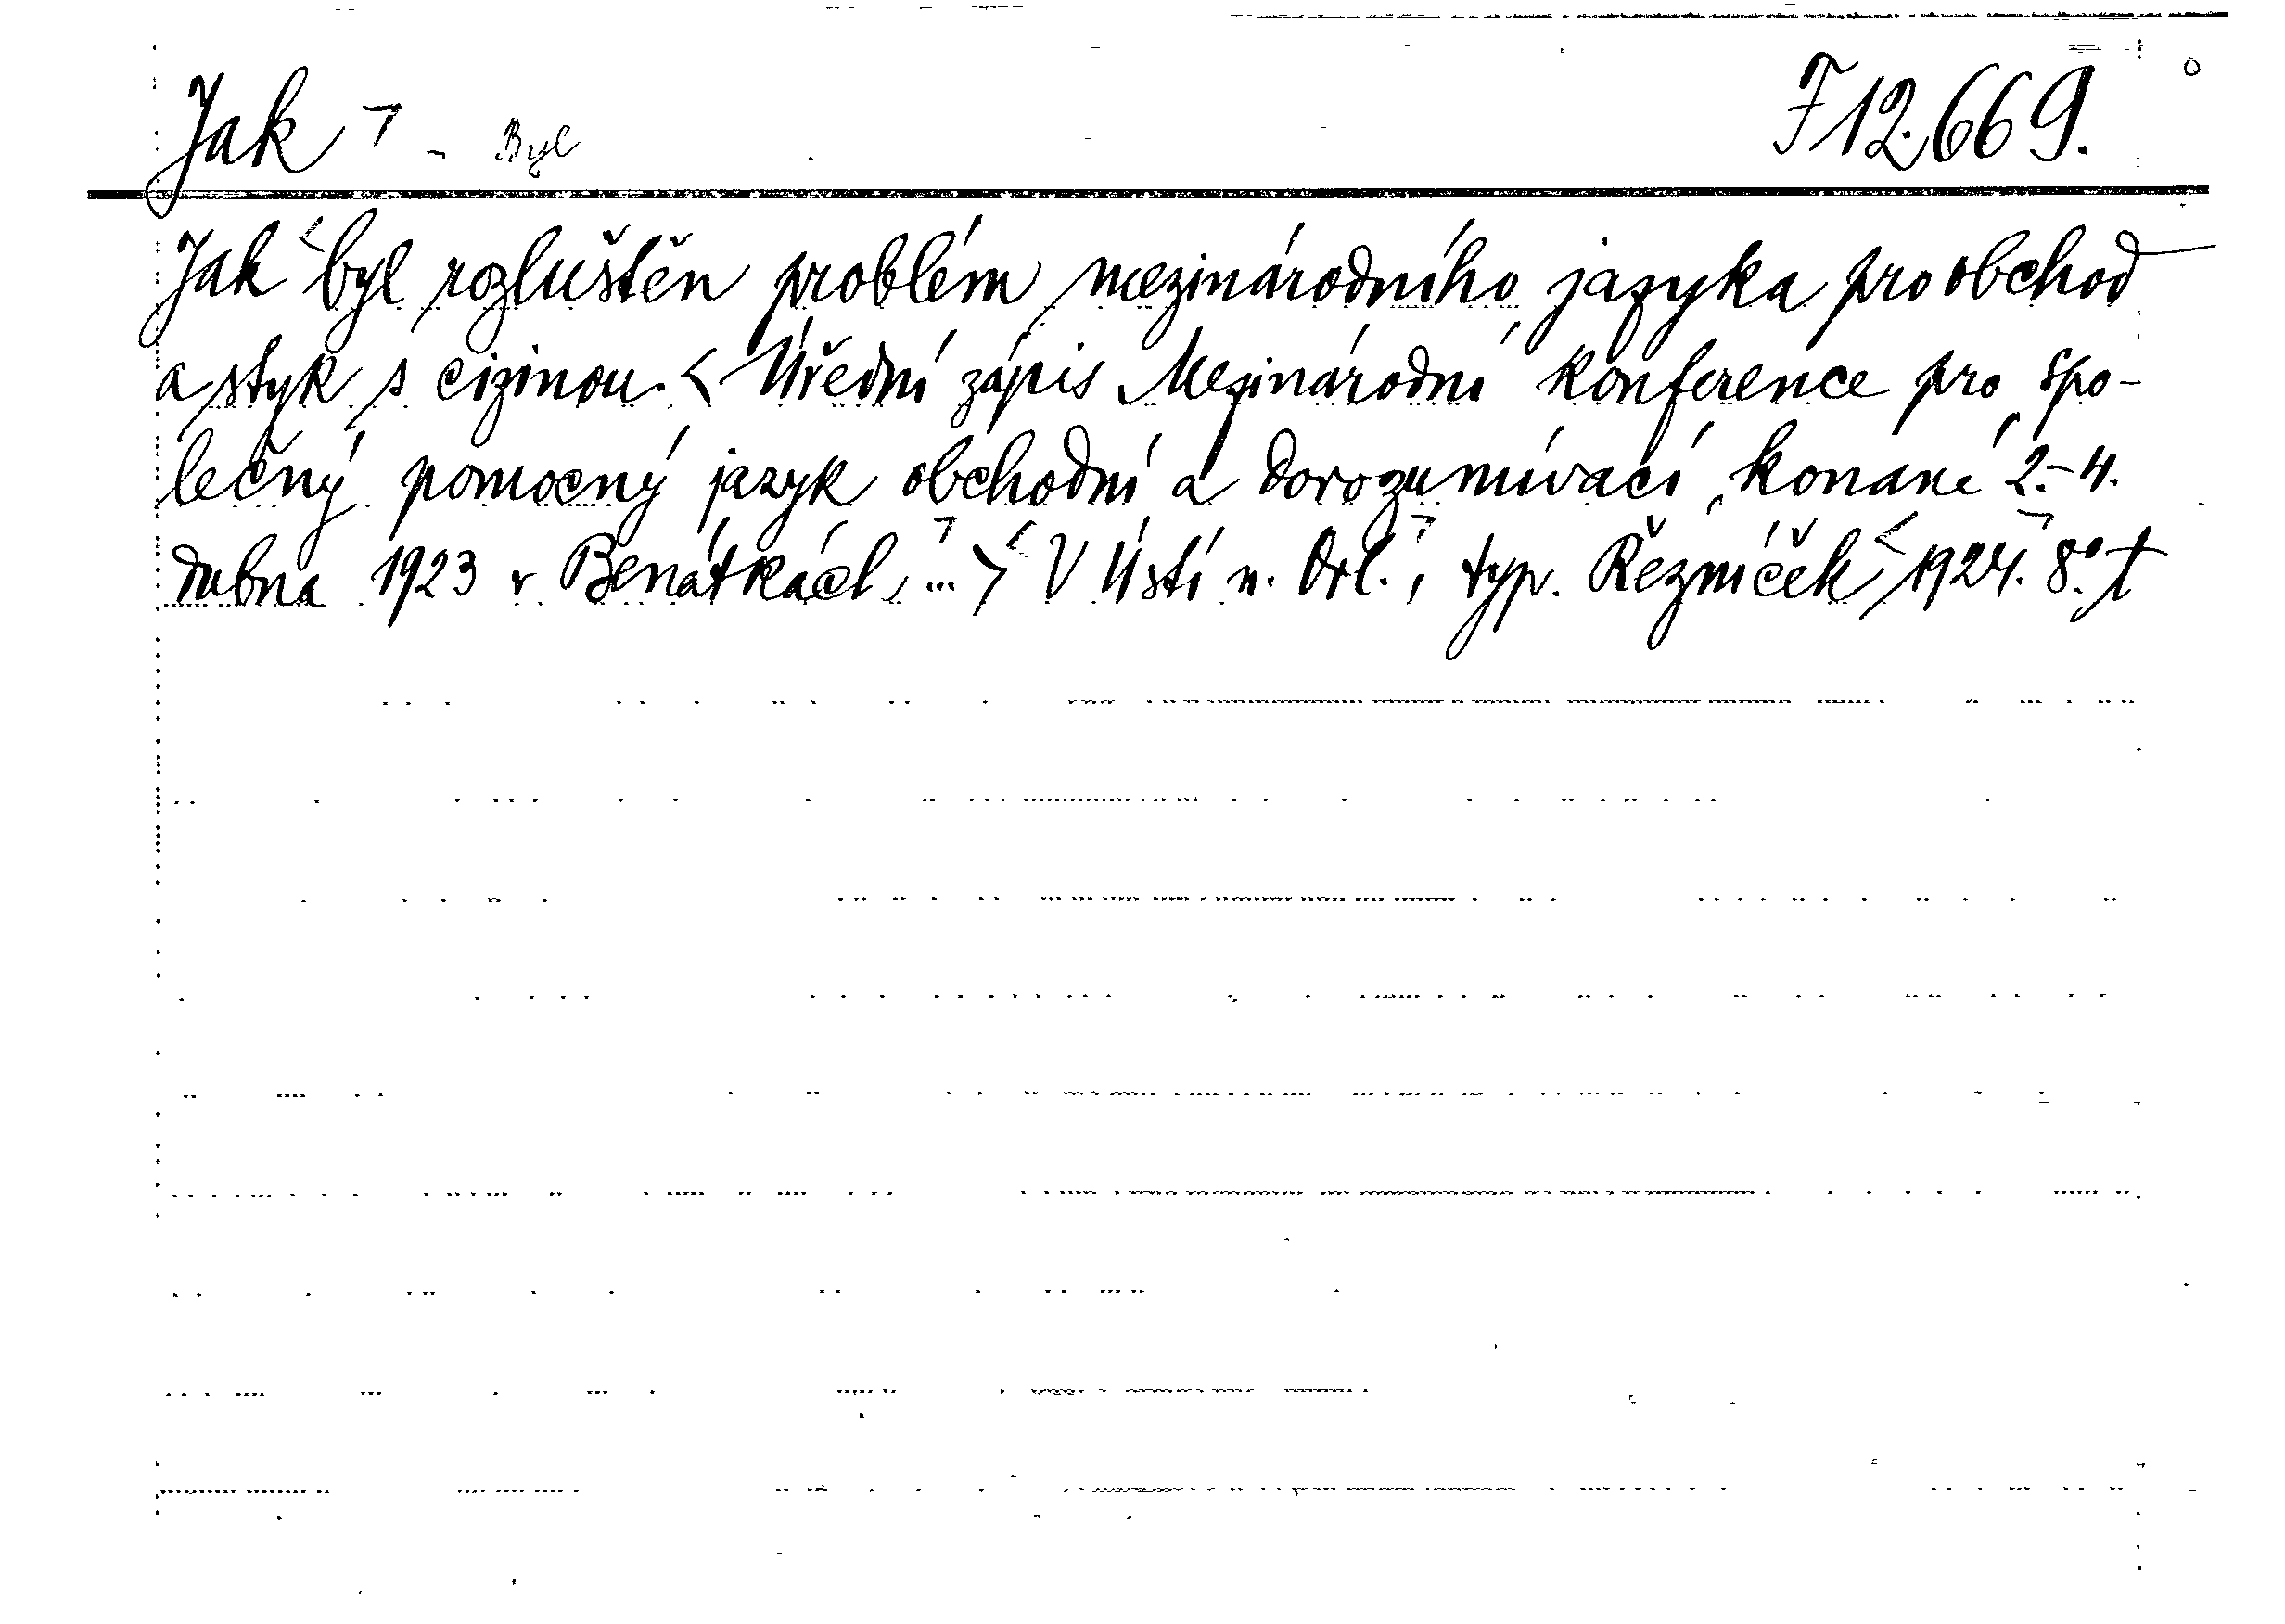 Jak ¬ - Byl F 12.669.
Jak < byl rozluštěn problém mezinárodního jazyka pro obchod
a styk s cizinou. < Úřední zápis Mezinárodní konference pro spo-
lečný pomocný jazyk obchodní a dorozumívací, konané 2.-4.
dubna 1923 v Benátkách, ... > < V Ústí n. Orl. ¬, typ. Řezníček < 1924. ¬ 8°. †